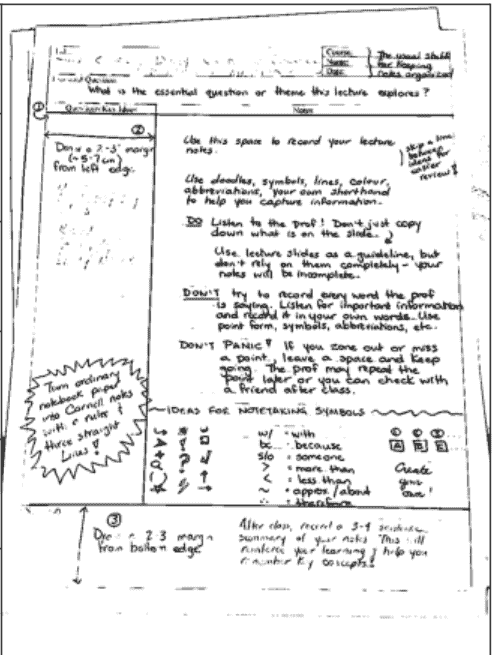 Course:
Name:
Date:
The usual stuff
for keeping
notes organized
Essential Question:
What is the essential question or theme this lecture explores?
①
Notes
②
2-3" margin
(~5-7cm)
from left edge.
Use this space to record your lecture
notes.
skip a line
between
ideas for
easier
review!
Use doodles, symbols, lines, colour,
abbreviations, your own shorthand
to help you capture information.
DO Listen to the prof! Don't just copy
down what is on the slide.
Use lecture slides as a guideline, but
don't rely on them completely - your
notes will be incomplete.
DON'T try to record every word the prof
is saying. Listen for important information
and record it in your own words. Use
point form, symbols, abbreviations, etc.
DON'T PANIC! If you zone out or miss
a point, leave a space and keep
going. The prof may repeat the
point later or you can check with
a friend after class.
Turn ordinary
notebook paper
into Cornell notes
with a ruler &
three straight
lines!
IDEAS FOR NOTETAKING SYMBOLS
w/ = with
bc = because
s/o = someone
> = more than
< = less than
~ = approx/about
∴ = therefore
Create
your
own!
③
2-3 margin
from bottom edge
After class, record a 3-4 sentence
summary of your notes. This will
reinforce your learning & help you
remember key concepts!